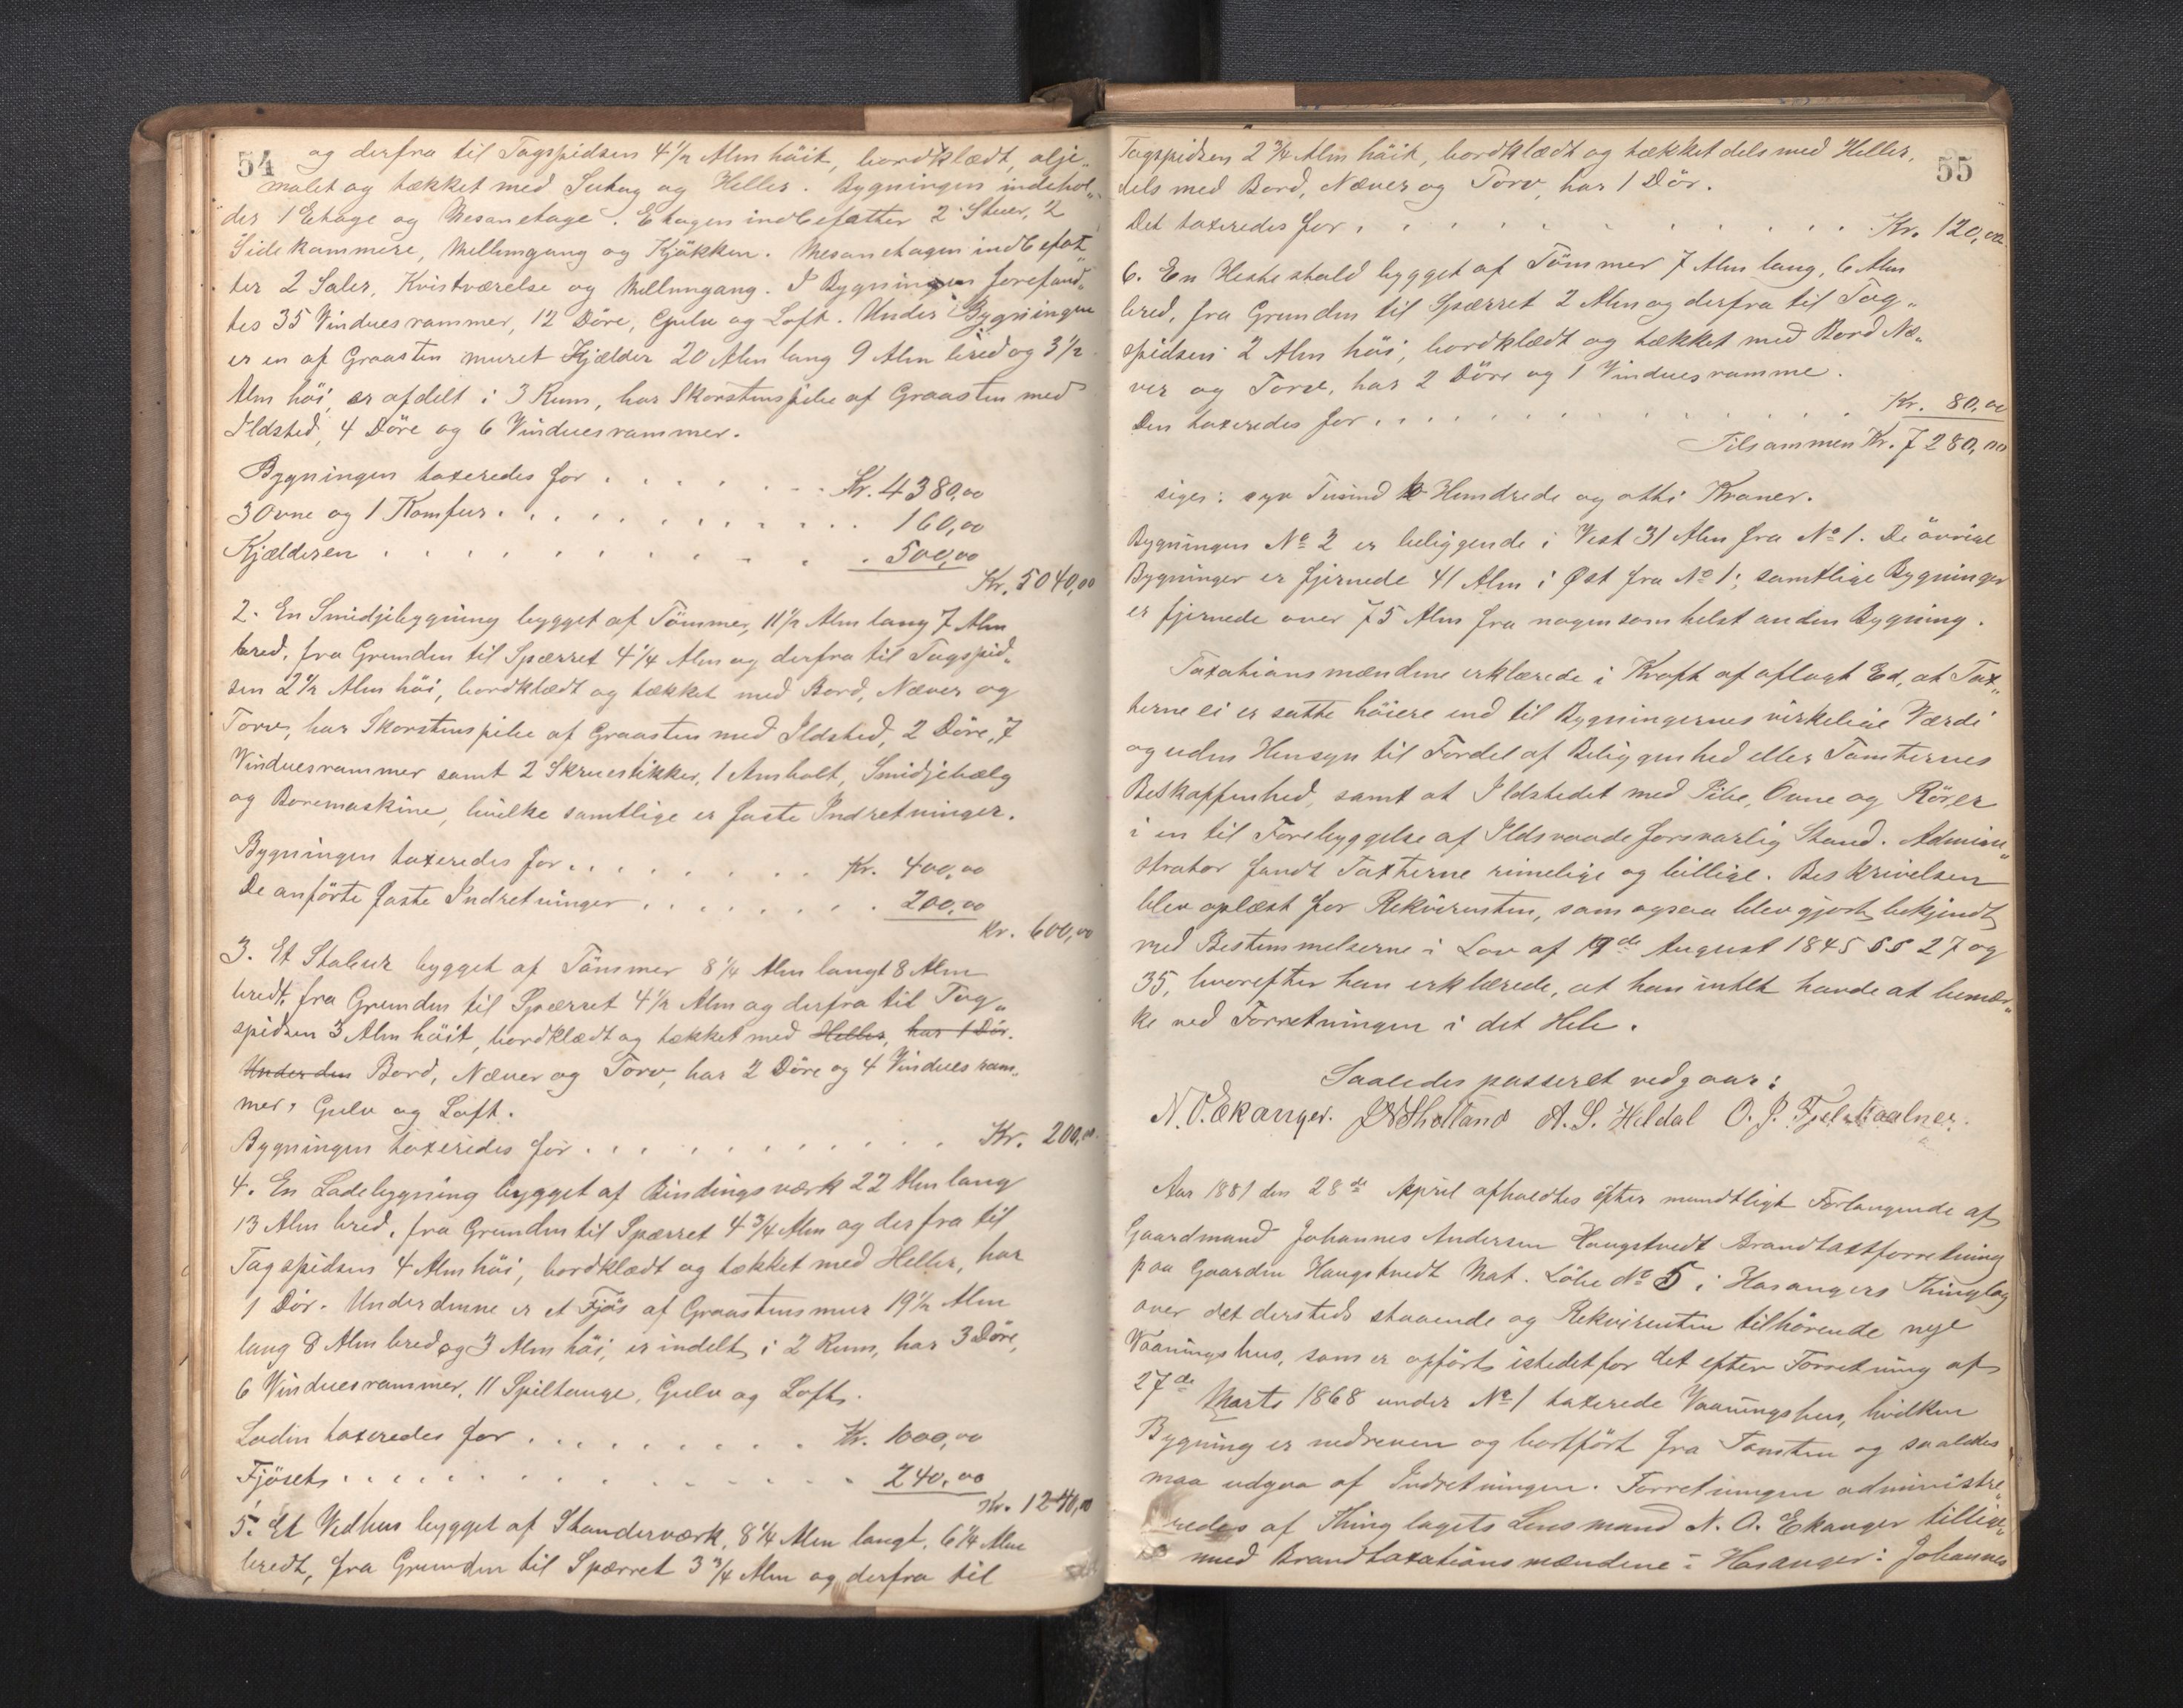 54
og derfra til Tagspidsen 4 1/2 Alm höit, bordklædt, olje-
malet og tækket med Sutag og Heller. Bygningen indehol-
der 1 Etage og Mesanetage. Etagen indbefatter 2 Stuer, 2
Sidekammere, Mellemgang og Kjökken. Mesanetagen indbefat-
ter 2 Saler, Kvistværelse og Mellemgang. I Bygningen forefand-
tes 35 Vinduesrammer, 12 Döre, Gulv og Loft. Under Bygningen
er en af Graasten muret Kjælder 20 Alm lang 9 Alm bred og 3 1/2
Alm höi, er afdelt i 3 Rum, har Skorstenspibe af Graasten med
Ildsted, 4 Döre og 6 Vinduesrammer.
Bygningen taxeredes for . . . . . . . Kr. 4380,00
3 Ovne og 1 Komfur . . . . . . . . . . 160,00
Kjælderen . . . . . . . . . . . 500,00
Kr. 5040,00
2. En Smidjebygning bygget af Tömmer, 11 1/2 Alm lang 7 Alm
bred, fra Grunden til Spærret 4 1/4 Alm og derfra til Tagspid-
sen 2 1/2 Alm höi, bordklædt og tækket med Bord, Næver og
Torv, har Skorstenspibe af Graasten med Ildsted, 2 Döre, 7
Vinduesrammer samt 2 Skruestikker, 1 Amholt, Smidjebælg
og Boremaskine, hvilke samtlige er faste Indretninger.
Bygningen taxeredes for . . . . . . . Kr. 400,00
De anförte faste Indretninger . . . . . . . 200,00
Kr. 600,00
3. Et Stabur bygget af Tömmer 8 1/4 Alm langt 8 Alm
bredt, fra Grunden til Spærret 4 1/2 Alm og derfra til Tag-
spidsen 3 Alm höit, bordklædt og tækket med Heller, har 1 Dör.
Under den Bord, Næver og Torv, har 2 Döre og 4 Vinduesram-
mer, Gulv og Loft.
Bygningen taxeredes for . . . . . . . . . . . Kr. 200,00
4. En Ladebygning bygget af Bindingsværk 22 Alm lang
13 Alm bred, fra Grunden til Spærret 4 3/4 Alm og derfra til
Tagspidsen 4 Alm höi, bordklædt og tækket med Heller, har
1 Dör. Under denne er et Fjös af Graastensmur 19 1/2 Alm
lang 8 Alm bred og 3 Alm höi, er indelt i 2 Rum, har 3 Döre,
6 Vinduesrammer, 11 Spiltauge, Gulv og Loft.
Laden taxeredes for . . . . . . . . . Kr. 1000,00
Fjöset . . . . . . . . . . . . . . 240,00
Kr. 1240,00
5. Et Vedhus bygget af Standerværk, 8 1/4 Alm langt, 6 1/4 Alm
bredt, fra Grunden til Spærret 3 3/4 Alm og derfra til
55
Tagspidsen 2 3/4 Alm höik, bordklædt og tækket dels med Heller,
dels med Bord, Næver og Torv, har 1 Dör.
Det taxeredes for . . . . . . . . . . . . Kr. 120,00
6. En Hestestald bygget af Tömmer 7 Alm lang, 6 Alm
bred, fra Grunden til Spærret 2 Alm og derfra til Tag-
spidsen 2 Alm höi, bordklædt og tækket med Bord Næ-
ver og Torv, har 2 Döre og 1 Vinduesramme.
Den taxeredes for . . . . . . . . . . . . Kr. 80,00
Tilsammen Kr. 7280,00
siger: syv Tusind to Hundrede og otti Kroner.
Bygningen No 2 er beliggende i Vest 31 Alm fra No 1. De övrige
Bygninger er fjernede 41 Alm i Øst fra No 1; samtlige Bygninger
er fjernede over 75 Alm fra nogensomhelst anden Bygning.
Taxationsmændene erklærede i Kraft af aflagt Ed, at Tax-
terne ei er satte höiere end til Bygningernes virkelige Værdi
og uden Hensyn til Fordel af Beliggenhed eller Tomternes
Beskaffenhed, samt at Ildstedet med Pibe, Ovne og Rör er
i en til Forebyggelse af Ildsvaade forsvarlig Stand. Admini-
strator fandt Taxterne rimelige og billige. Beskrivelsen
blev oplæst for Rekvirenten, som ogsaa blev gjort bekjendt
med Bestemmelserne i Lov af 19de August 1845 §§ 27 og
35, hvorefter han erklærede, at han intet havde at bemær-
ke ved Forretningen i det Hele.
Saaledes passeret vedgaar:
N. O. Ekanger. A. S. Heldal O. J.
Aar 1881 den 28de April afholdtes efter mundtligt Forlangende af
Gaardmand Johannes Andersen Haugstvedt Brandtaxtforretning
paa Gaarden Haugstvedt Mat. Löbe No 5 i Hosangers Thinglag
over det dersteds staaende og Rekvirenten tilhörende nye
Vaaningshus, som er opfört istedetfor det efter Forretning af
27de Marts 1868 under No 1 taxerede Vaaningshus, hvilken
Bygning er nedreven og bortfört fra Tomten og saaledes
maa udgaa af Indretningen. Forretningen administre-
redes af Thinglagets Lensmand N. O. Ekanger tillige-
med Brandtaxationsmændene i Hosanger: Johannes